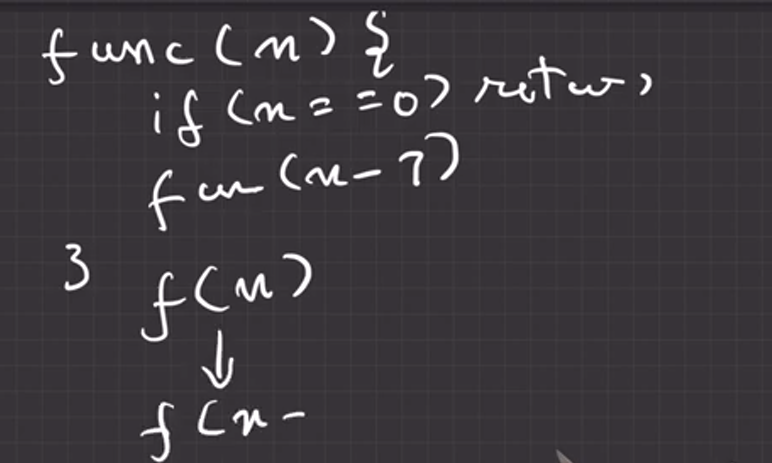 func(n) {
if (n==0) return;
fun(n-7)
}
f(n)
↓
f(n-